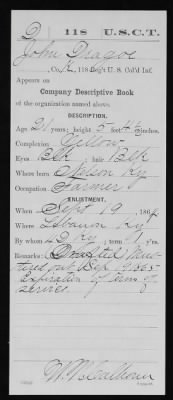 D 118 U.S.C.T.
John
Co. , 118 Reg't U. S. Col'd Inf.
Appears on
Company Descriptive Book
of the organization named above.
DESCRIPTION.
Age 21 years; height 5 feet inches.
Complexion Yellow
Eyes Blk ; hair Blk
Where born Nelson Ky
Occupation Farmer
ENLISTMENT.
When Sept 19 , 186
Where Lebanon Ky
By whom ; term y'rs.
Remarks:
Sep. 19, 1865
Expiration of term of
service